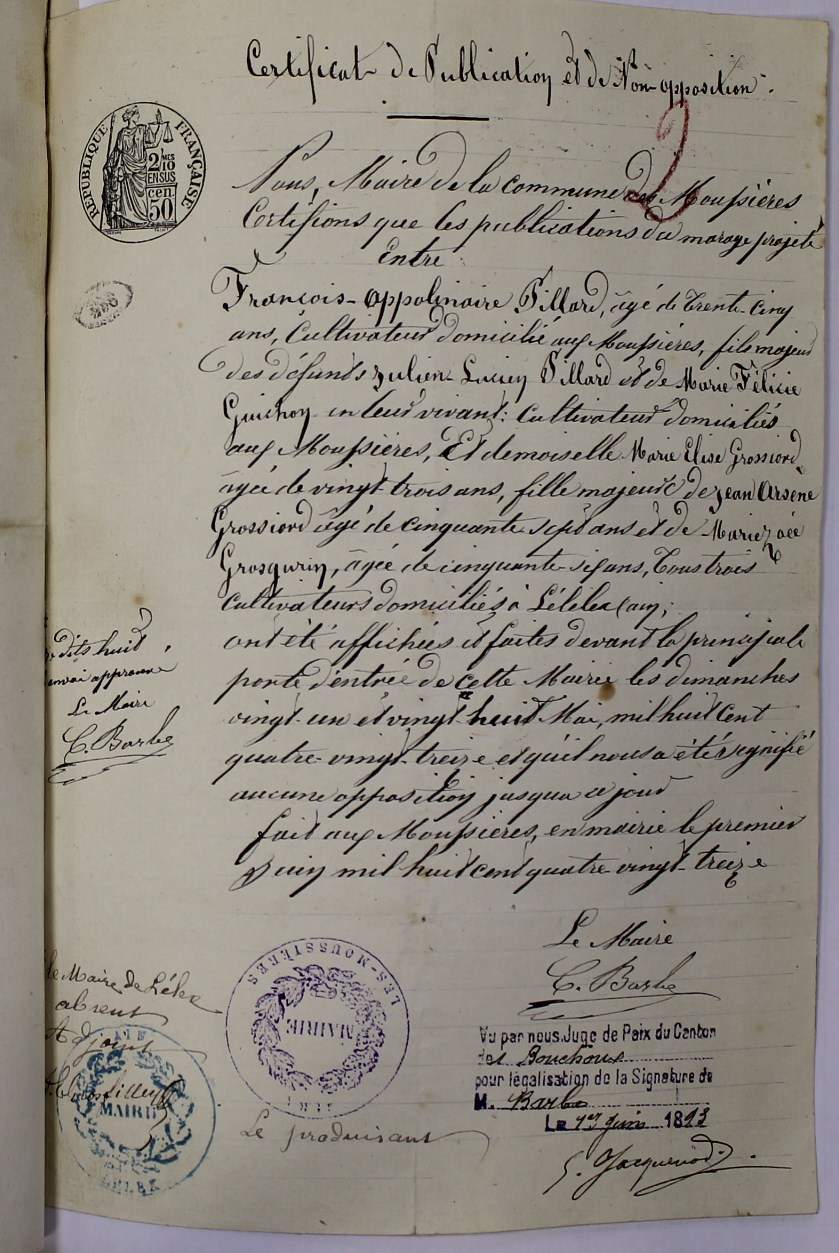 Certificat de Publication et de Non-opposition.
RÉPUBLIQUE FRANÇAISE
2 MES
10
EN SUS
50 cen.
2
Nous, Maire de la commune des Moussières
Certifions que les publications du marage projeté
Entre
François-Appolinaire Pillard, âgé de Trente-Cinq
ans, Cultivateur domicilié aux Moussières, fils majeur
des défunts Julien Lucien Pillard et de Marie Félicie
Guichon en leur vivant: Cultivateurs domiciliés
aux Moussières, Et demoiselle Marie Elise Grossiord,
âgée de vingt-trois ans, fille majeure de Jean Arsène
Grossiord âgé de cinquante-sept ans et de Marie Zoée
Grosgurin, âgée de cinquante-six ans, Tous trois
cultivateurs domiciliés à Lélelex (ain;
ont été affichées et faites devant la principale
porte d'entrée de cette Mairie les dimanches
vingt-un et vingt-huit Mai, mil huit cent
quatre-vingt-treize et qu'il nous a été signifié
aucune opposition jusqua ce jour
fait aux Moussières, en mairie le premier
Juin mil huit cent quatre-vingt-treize
dits huit
envoi approuvé
Le Maire
C. Barbe
Le Maire
C. Barbe
le Maire de Lélex
absent
Adjoint
MAIRIE
LELEX
LES-MOUSSIÈRES
MAIRIE
Le produisant
Vu par nous Juge de Paix du Canton
des Bouchoux
pour légalisation de la Signature de
M. Barbe
Le 1er Juin 1893
Jacquenod